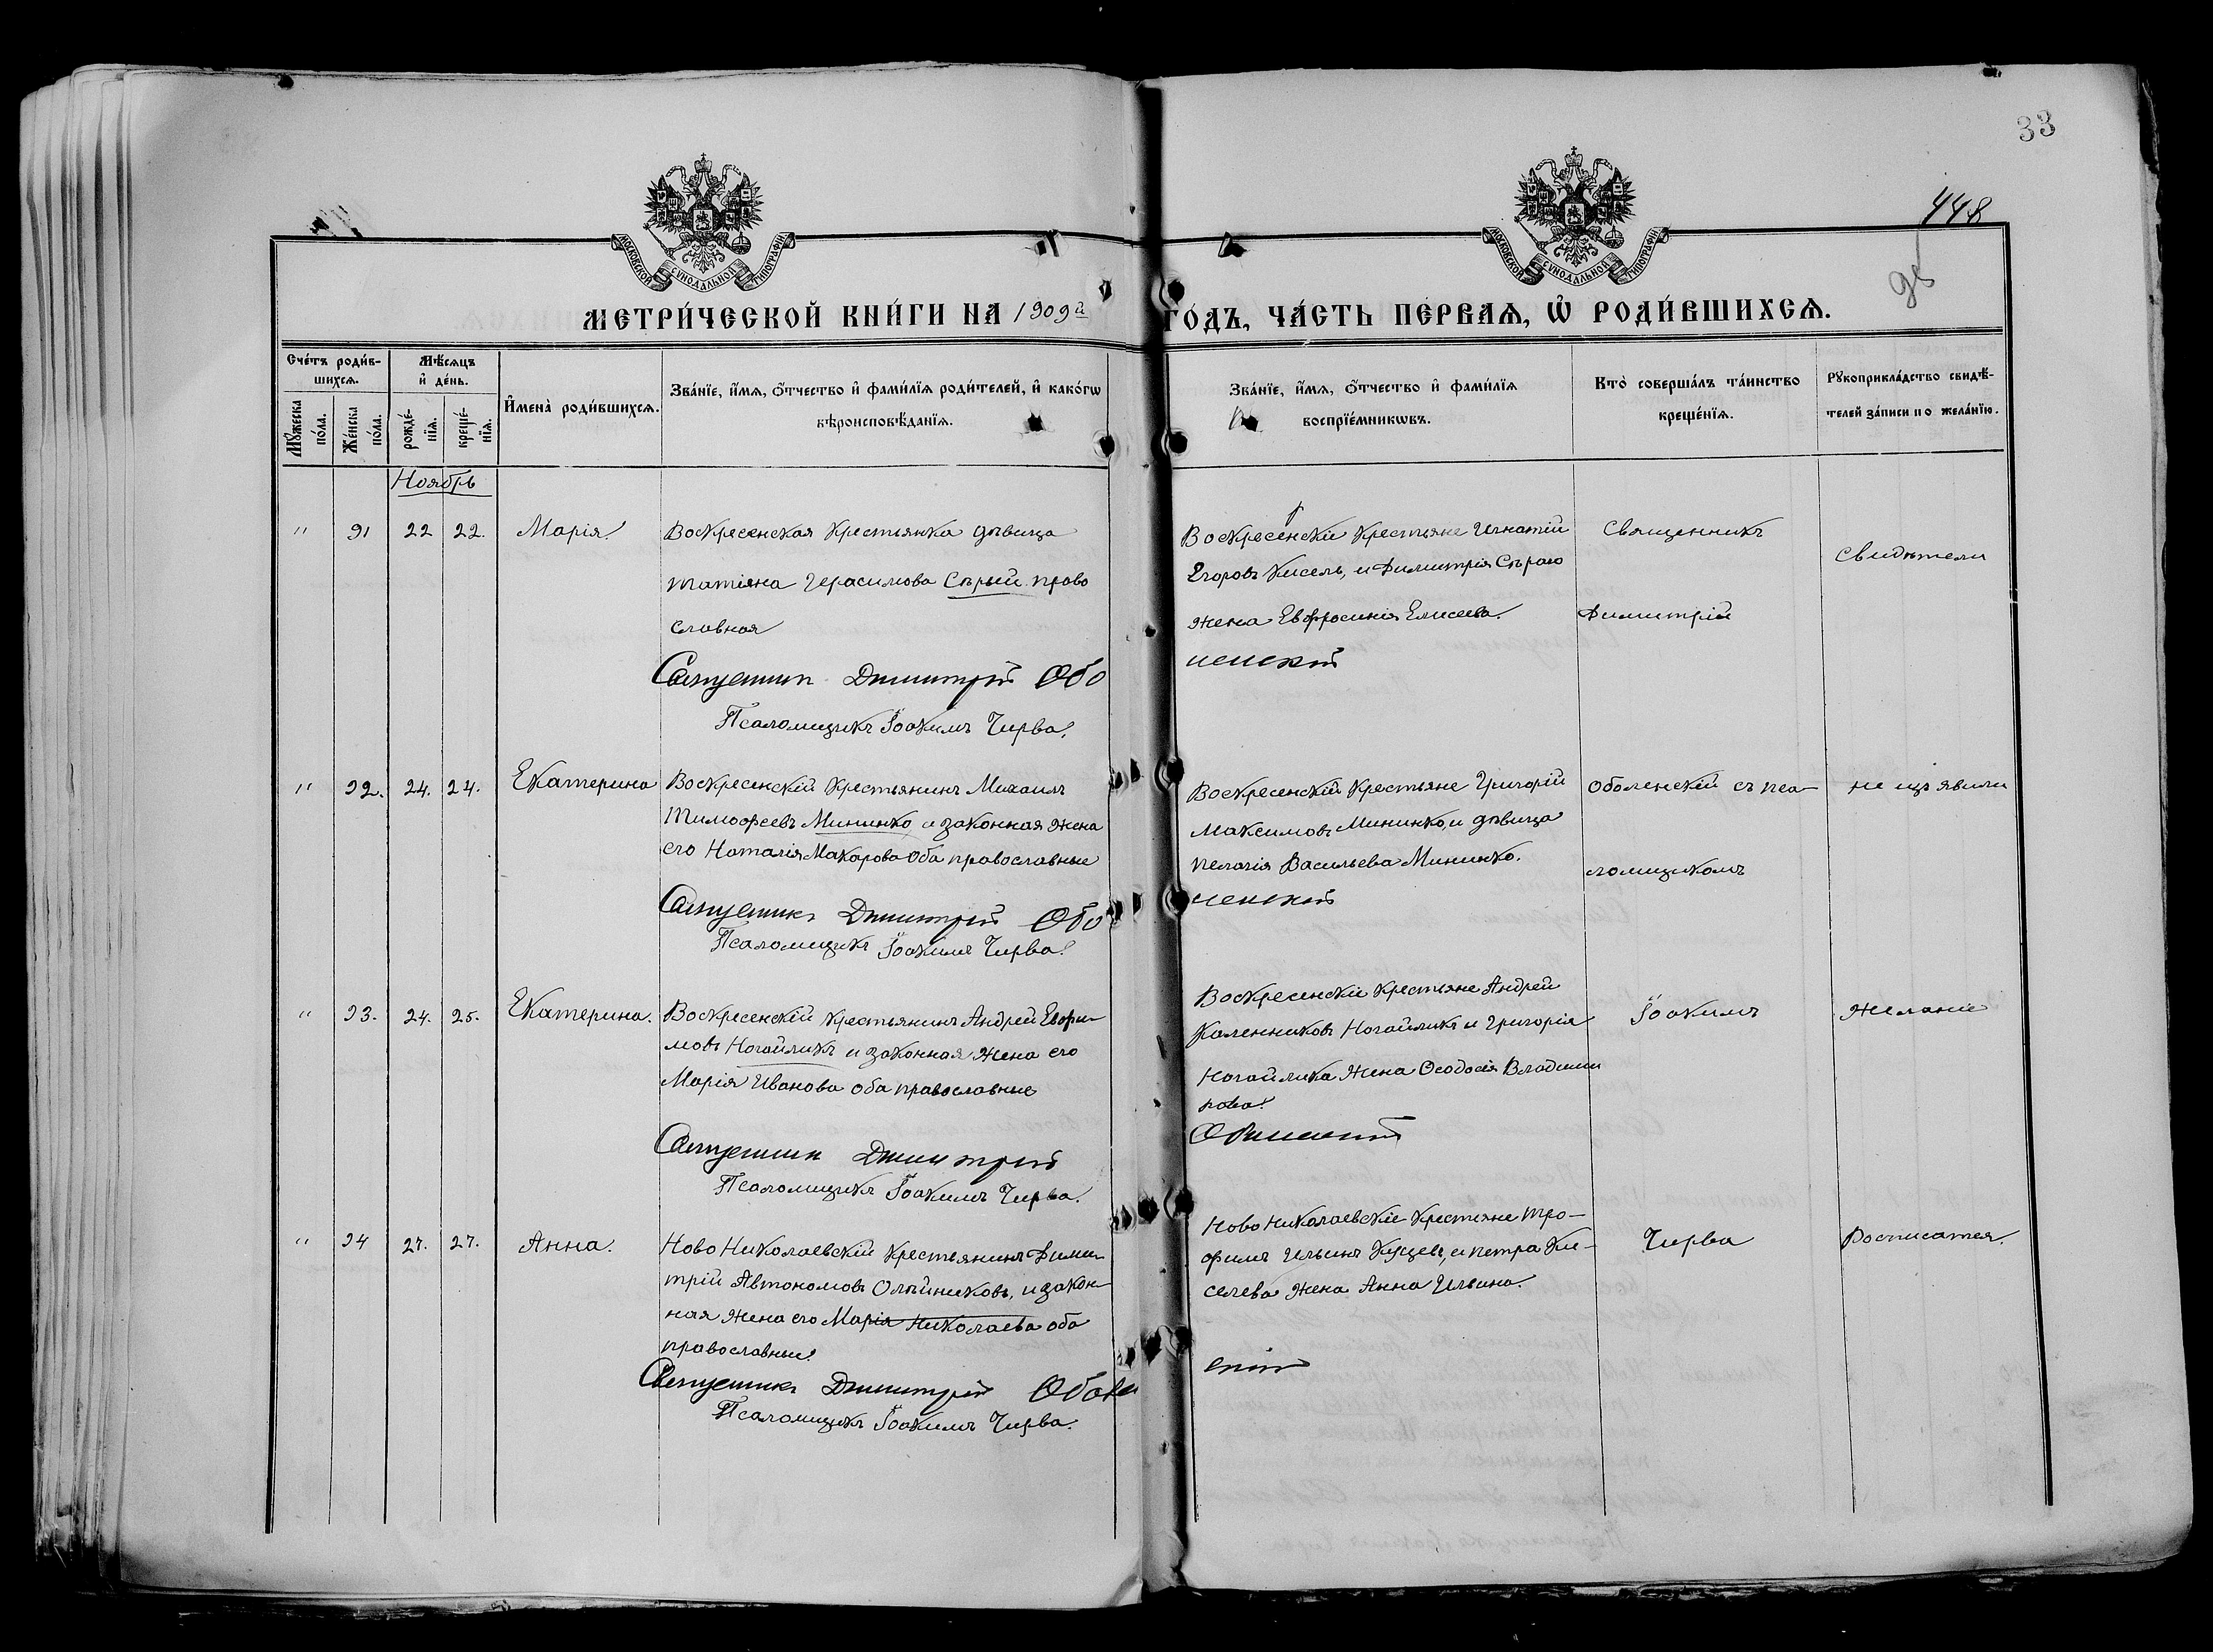 33
448
МОСКОВСКОЙ СѴНОДАЛЬНОЙ ТИПОГРАФІИ
МОСКОВСКОЙ СѴНОДАЛЬНОЙ ТИПОГРАФІИ
МЕТРИ́ЧЕСКОЙ КНИ́ГИ НА 1909й ГО́ДЪ, ЧА́СТЬ ПЕ́РВАѦ, Ѡ҆ РОДИ́ВШИХСѦ.
Сче́тъ роди́в-
шихсѧ.
Мꙋ́жеска
по́ла.
Же́нска
по́ла.
Мѣ́сѧцъ
и҆ де́нь.
рожде́-
нїѧ.
креще́-
нїѧ.
И҆мена̀ роди́вшихсѧ.
Зва́нїе, и҆́мѧ, ѻ҆́тчество и҆ фами́лїѧ роди́телей, и҆ како́гѡ
вѣроисповѣ́данїѧ.
Зва́нїе, и҆́мѧ, ѻ҆́тчество и҆ фами́лїѧ
воспрїе́мникѡвъ.
Кто̀ соверша́лъ та́инство
креще́нїѧ.
Рꙋкоприкла́дство свидѣ́-
телей за́писи по жела́нїю.
Ноябрь
" 91 22 22. Марія
Воскресенская крестьянка дѣвица
Татіяна Герасимова Сѣрый право
славная
Священник Димитрій Обо
Псаломщикъ Іоакимъ Чирва.
Воскресенскіе крестьяне Игнатій
Егоровъ Кисель, и Димитрія Сѣраго
жена Евфросинія Елисеева.
ленскій
Священникъ
Димитрій
Свидѣтели
" 92. 24. 24. Екатерина
Воскресенскій крестьянинъ Михаилъ
Тимофеевъ Мининко и законная жена
его Наталія Макарова оба православные
Священникъ Димитрій Обо
Псаломщикъ Іоакимъ Чирва.
Воскресенскій крестьяне Григорій
Максимовъ Мининко, и дѣвица
Пелагія Васильева Мининко.
ленскій
Оболенскій съ пса-
ломщикомъ
не изъявили
" 93. 24. 25. Екатерина.
Воскресенскій крестьянинъ Андрей
Ногайликъ и законная жена его
Марія Иванова оба православные
Священник Димитрій
Псаломщикъ Іоакимъ Чирва.
Воскресенскіе крестьяне Андрей
Каленниковъ Ногайликъ и Григорія
Ногайлика жена Ѳеодосія Владими
рова.
Оболенскій
Іоакимъ
желаніе
" 94 27. 27. Анна.
Ново Николаевскій крестьянинъ Дими-
трій Автономовъ Олѣйниковъ, и закон-
ная жена его Марія Николаева оба
православные.
Священникъ Димитрій Оболен
Псаломщикъ Іоакимъ Чирва.
Ново Николаевскіе крестьяне Тро-
фимъ Ильинъ и Петра Ки-
селева жена Анна Ильина.
скій
Чирва
Росписатся